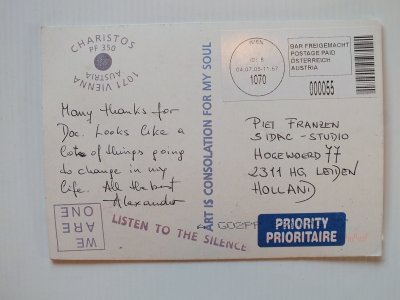 CHARISTOS
PF 350
1071 VIENNA
AUSTRIA
Many thanks for
Doc. Looks like a
lots of things going
to change in my
life. All the best
Alexander
WE
ARE
ONE
LISTEN TO THE SILENCE
ART IS CONSOLATION FOR MY SOUL
WIEN
04.07.05-11:57
1070
BAR FREIGEMACHT
POSTAGE PAID
ÖSTERREICH
AUSTRIA
000055
PIET FRANZEN
SIDAC - STUDIO
HOGEWOERD 77
2311 HG LEIDEN
HOLLAND
PRIORITY
PRIORITAIRE